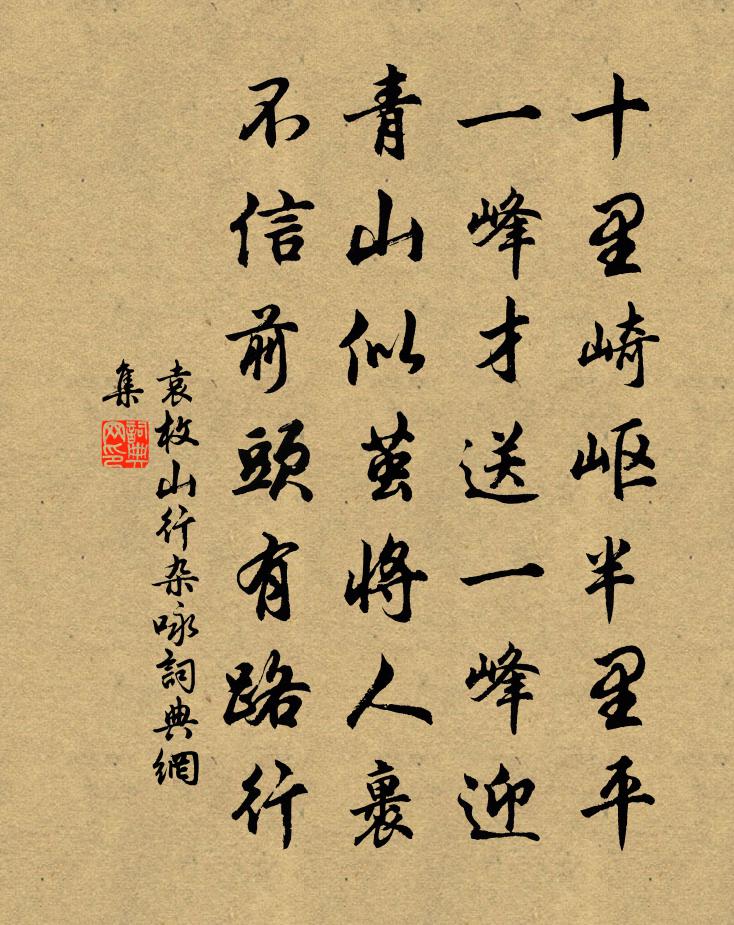 十里崎岖半里平
一峰才送一峰迎
青山似茧將人裹
不信前頭有路行
袁枚山行杂咏詞典網
集
詞典
网印